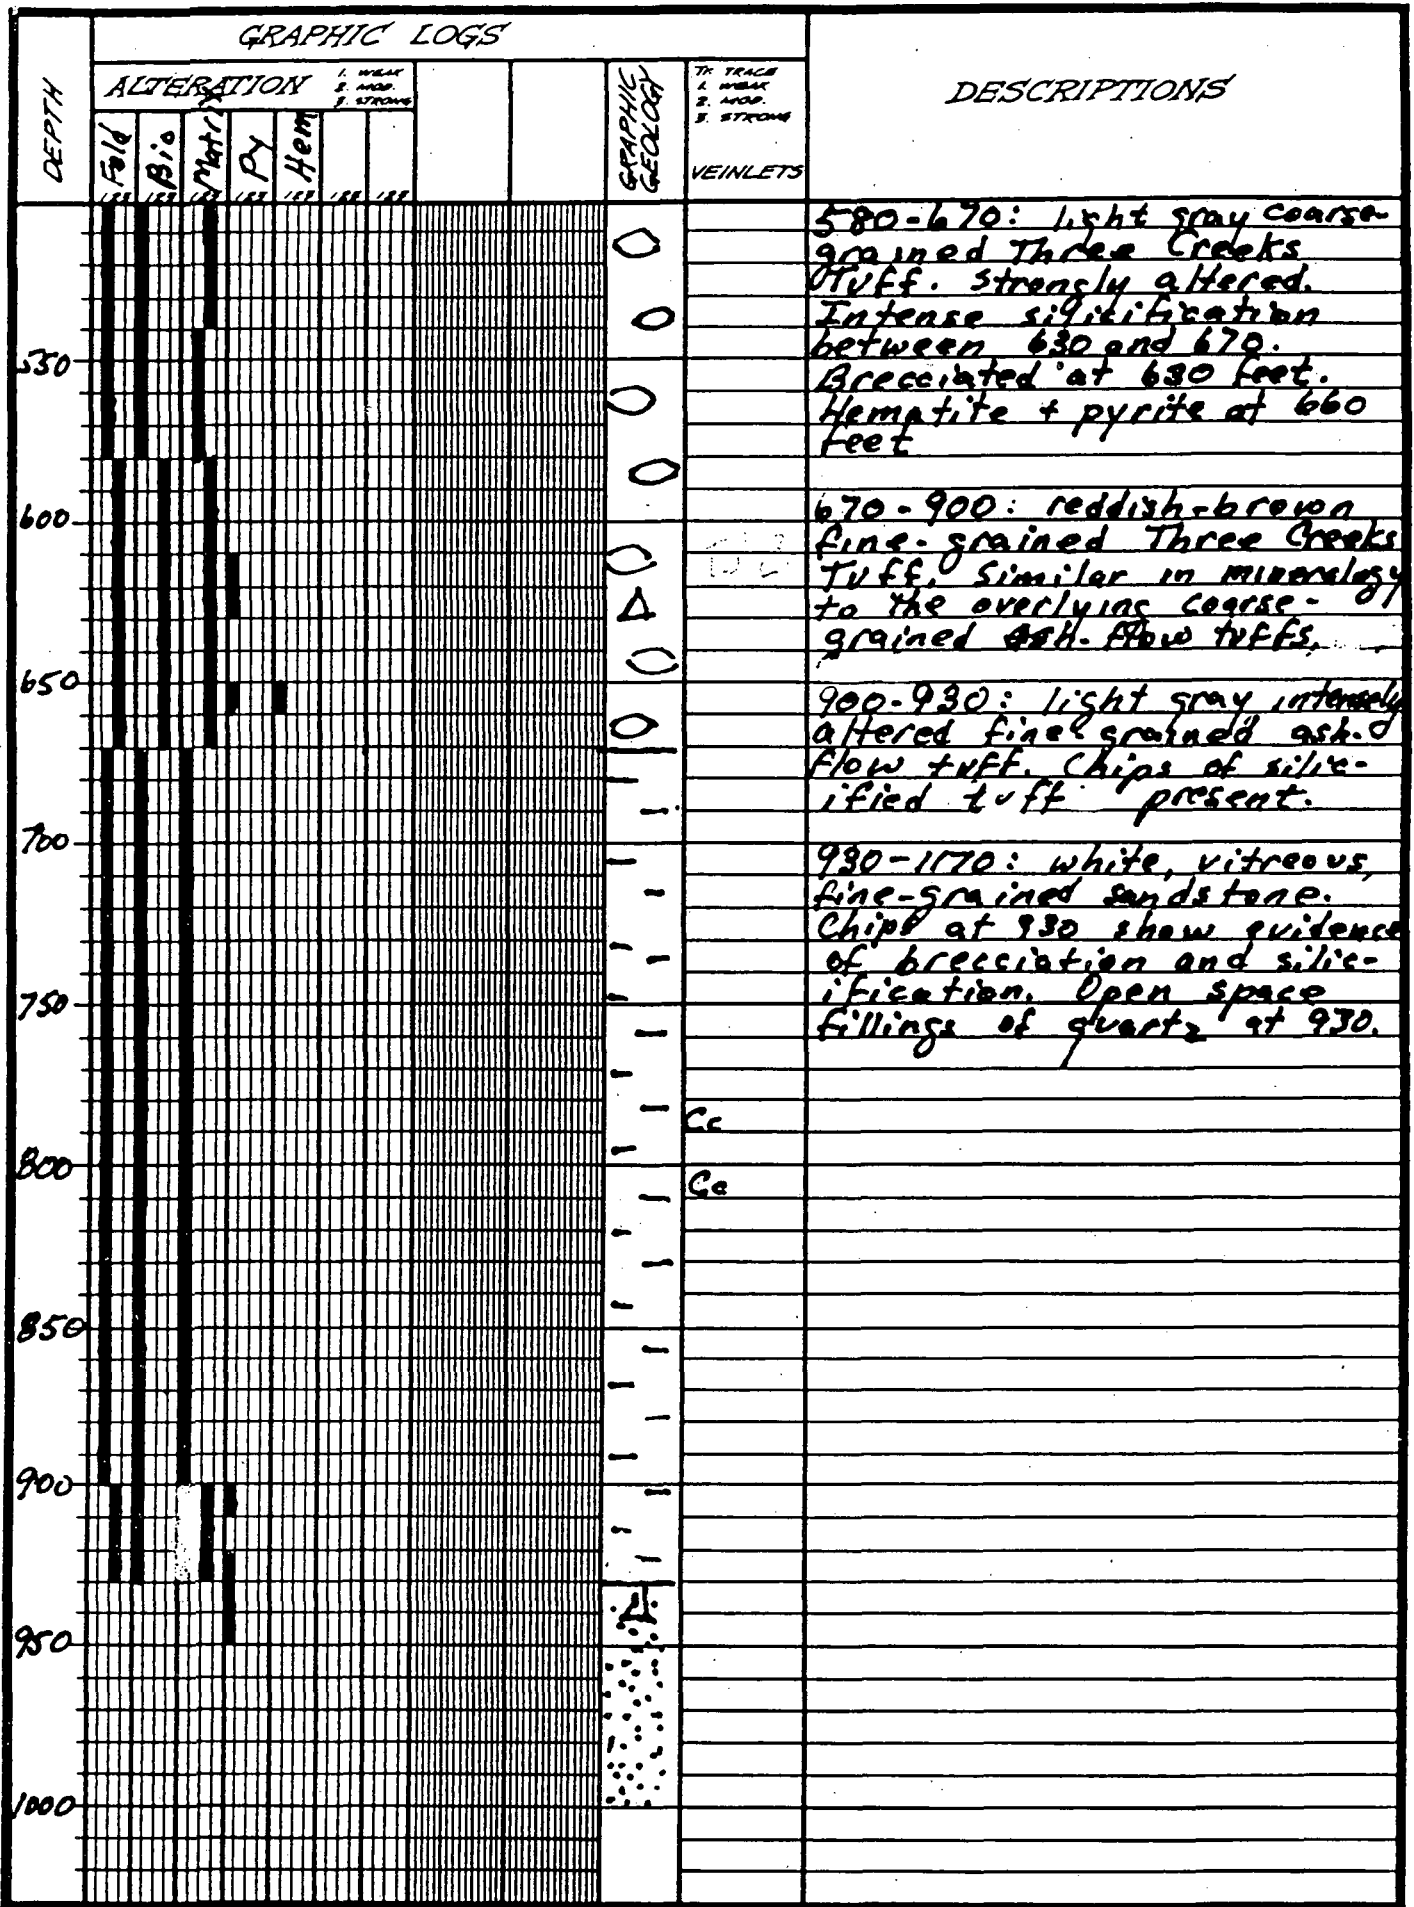 GRAPHIC LOGS
DEPTH
ALTERATION
1. WEAK
2. MOD.
3. STRONG
Feld
Bio
Matrix
Py
Hem
123 123 123 123 123 123 123
GRAPHIC
GEOLOGY
TR TRACE
1. WEAK
2. MOD.
3. STRONG
VEINLETS
DESCRIPTIONS
580-670: light gray coarse-
grained Three Creeks
Tuff. Strongly altered.
Intense silicification
between 630 and 670.
Brecciated at 630 feet.
Hematite + pyrite at 660
feet
670-900: reddish-brown
fine-grained Three Creeks
Tuff. Similar in mineralogy
to the overlying coarse-
grained ash-flow tuffs.
900-930: light gray intensely
altered fine grained ash-
flow tuff. Chips of silic-
ified tuff present.
930-1170: white, vitreous,
fine-grained sandstone.
Chips at 930 show evidence
of brecciation and silic-
ification. Open space
fillings of quartz at 930.
550
600
650
700
750
Cc
800
Cc
850
900
950
1000